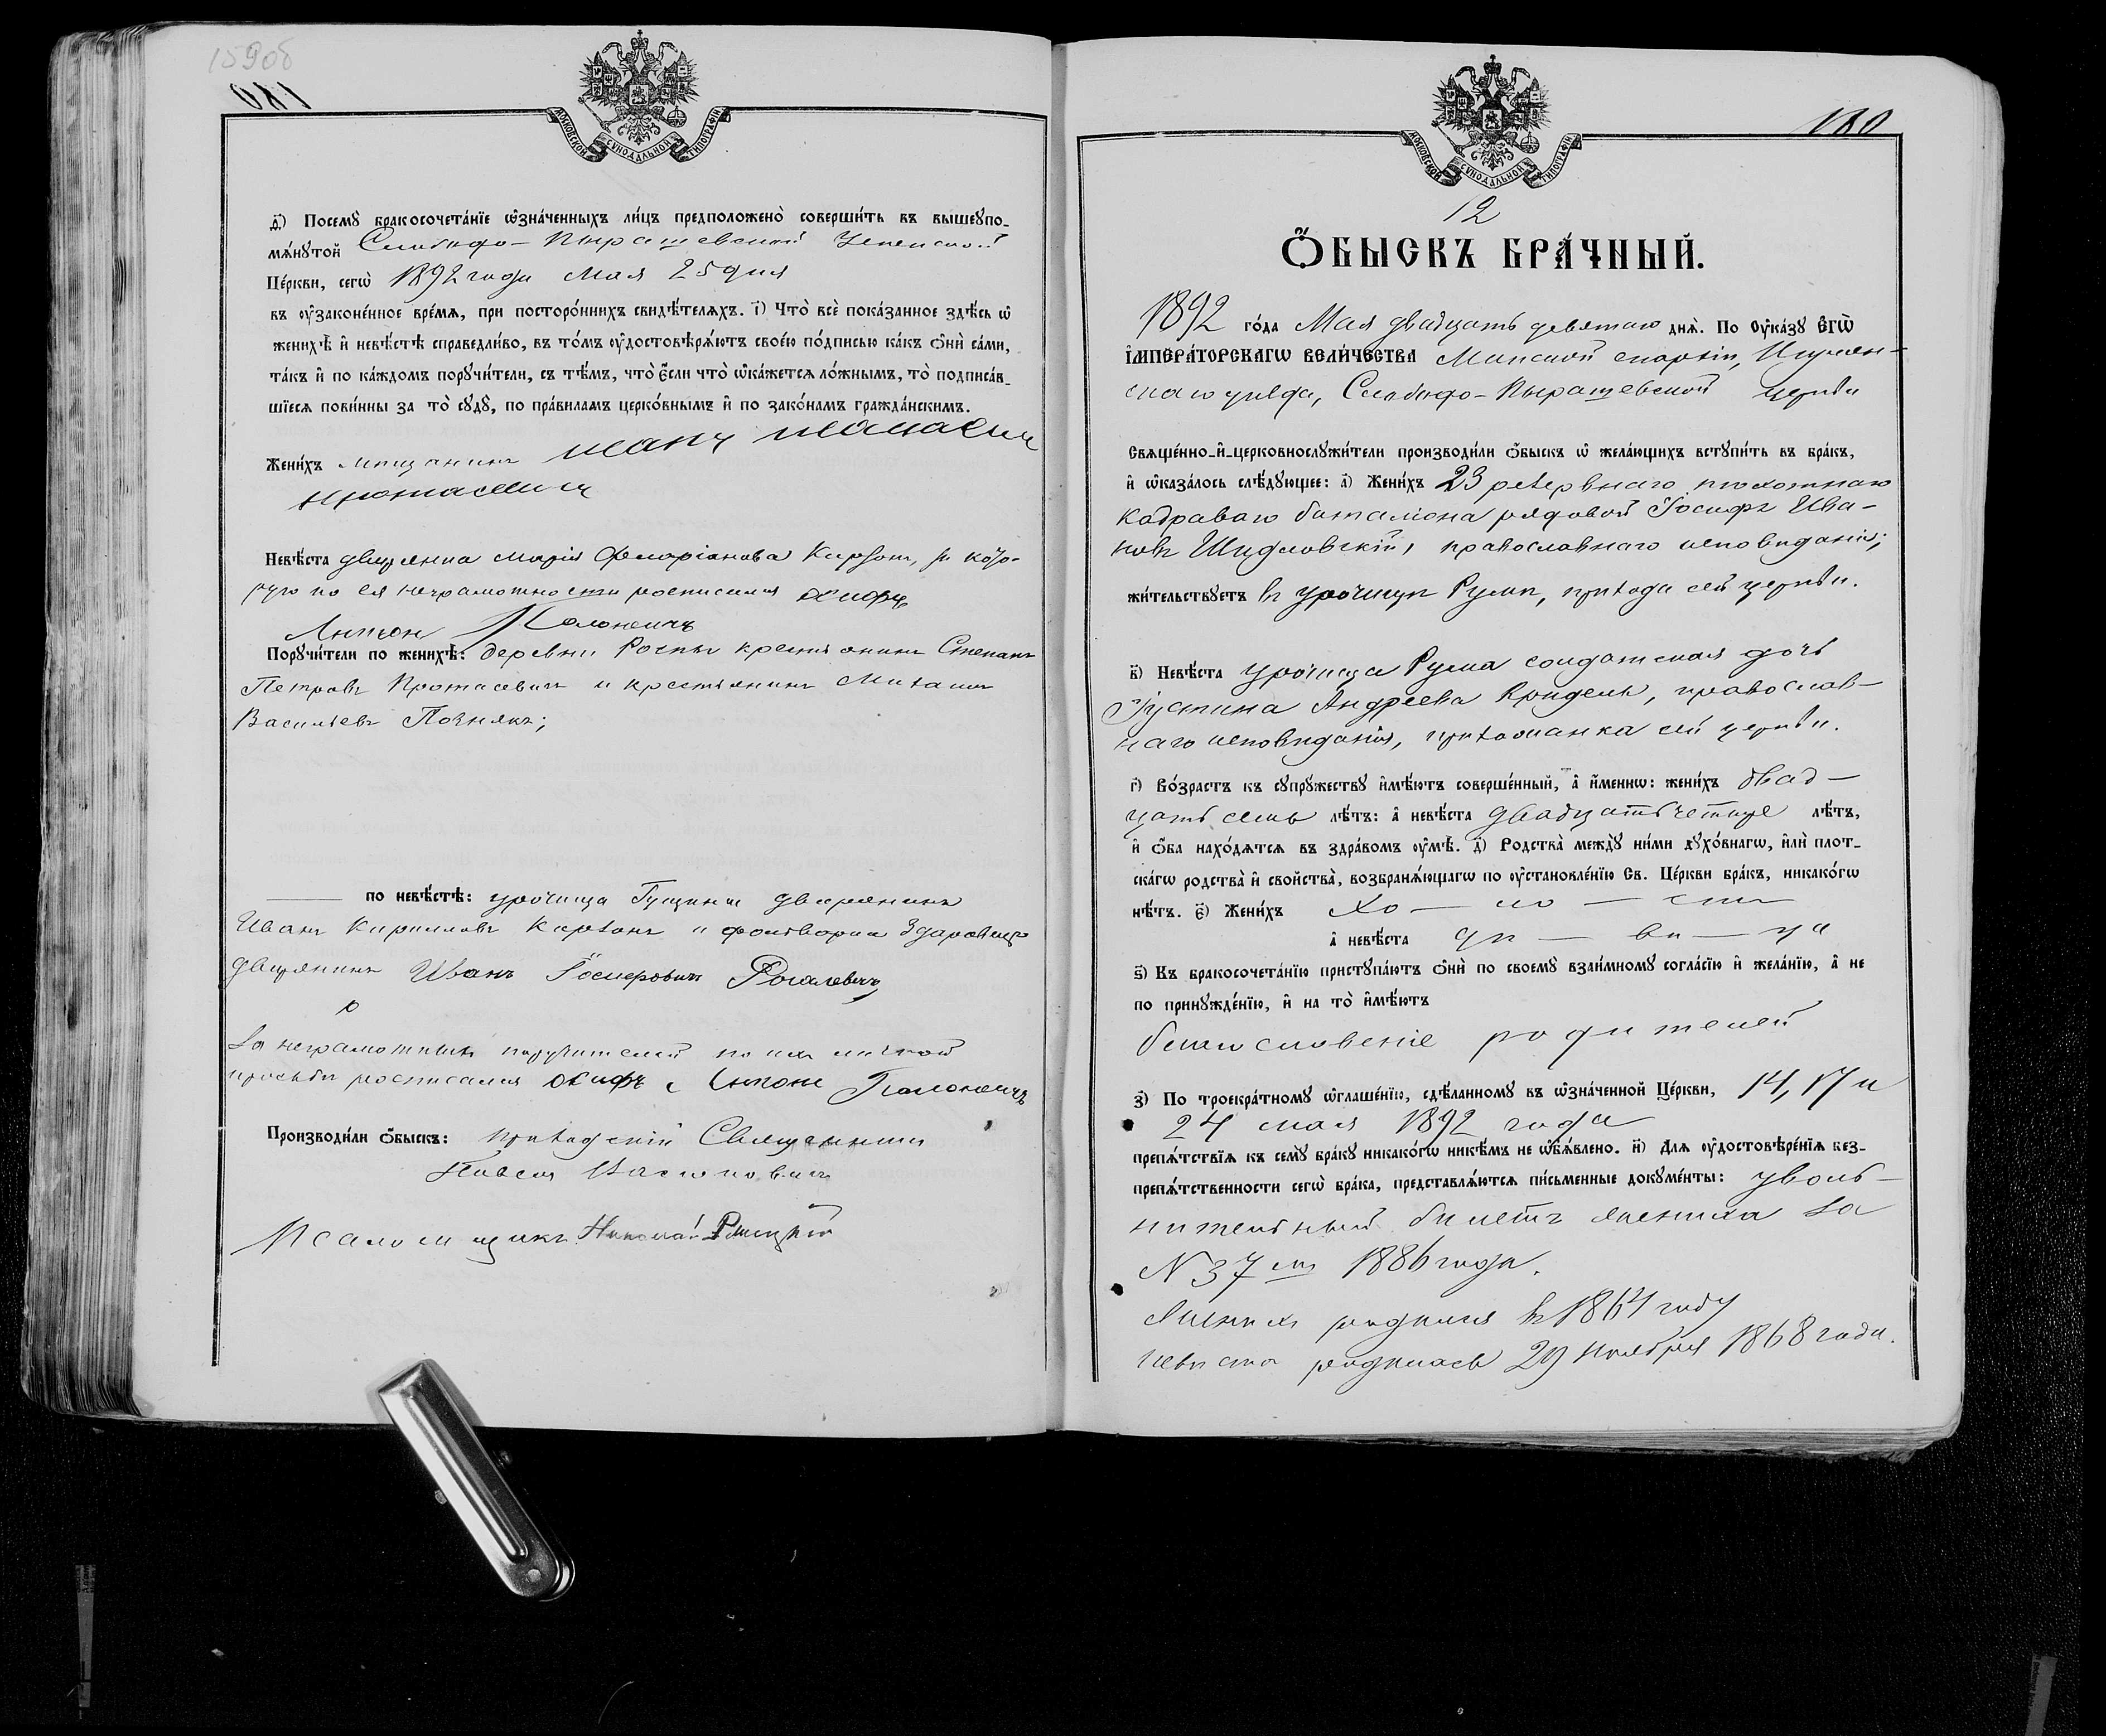 159об
180
МОСКОВСКОЙ СѴНОДАЛЬНОЙ ТИПОГРАФІИ
д҃і) Посемꙋ̀ бракосочета́нїе ѡ҆зна́ченныхъ ли́цъ предположено̀ соверши́ть въ вышеꙋпо-
мѧ́нꙋтой Слободо-Пырашевской Успенской
Це́ркви, сегѡ̀ 1892 года Мая 25 дня
въ ᲂу҆законе́нное вре́мѧ, при посторо́ннихъ свидѣ́телѧхъ. і҃) Что̀ всѐ пока́занное здѣ́сь ѡ҆
женихѣ̀ и҆ невѣ́стѣ справедли́во, въ то́мъ ᲂу҆достовѣрѧ́ютъ свое́ю по́дписью ка́къ ѻ҆нѝ са́ми,
та́къ и҆ по ка́ждомъ порꙋчи́тели, съ тѣ́мъ, что̀ є҆́сли что̀ ѡ҆ка́жетсѧ ло́жнымъ, то̀ подписа́в-
шїесѧ пови́нны за то̀ сꙋдꙋ̀, по пра́виламъ церко́внымъ и҆ по зако́намъ гражда́нскимъ.
Жени́хъ мѣщанинъ
Протасевич
Невѣ́ста дворянка Марія Флоріанова Карзонъ, за кото-
рую по ея неграмотности росписался Осифъ
Антон Полоневичъ
Порꙋчи́тели по женихѣ̀: деревни крестьянинъ Степанъ
Петровъ Протасевичъ и крестьянинъ Михаилъ
Васильевъ Позняк;
по невѣ́стѣ: урочища Гущины дворянинъ
Иванъ Кириловъ Карзонъ и фольворка
дворянинъ Иванъ Рогалевичъ
За неграмотныхъ поручителей по ихъ личной
просьбѣ росписался Осифъ Антоне Полоневичъ
Производи́ли ѻ҆́быскъ: приходскій Священникъ
Павелъ
Псаломщикъ Николай
180
МОСКОВСКОЙ СѴНОДАЛЬНОЙ ТИПОГРАФІИ
12
Ѻ҆́БЫСКЪ БРА́ЧНЫЙ.
1892 го́да Мая двадцать девятаго днѧ̀. По Оу҆ка́зꙋ Є҆гѡ̀
І҆мпера́торскагѡ вели́чества Минской епархіи, Игумен-
скаго уѣзда, Слободо-Пырашевской церкви
Свѧще́нно-и҆-церковнослꙋжи́тели производи́ли ѻ҆́быскъ ѡ҆ жела́ющихъ встꙋпи́ть въ бра́къ,
и҆ ѡ҆каза́лось слѣ́дꙋющее: а҃) Жени́хъ 23 резервнаго пѣхотнаго
Кадроваго баталіона рядовой Іосифъ Ива-
новъ Шидловскій, православнаго исповѣданія;
жи́тельствꙋетъ въ урочищѣ Румѣ, прихода сей церкви.
в҃) Невѣ́ста урочища Рума солдатская дочь
Іустина Андреева Кридель, православ-
наго исповѣданія, прихожанка сей церкви.
г҃) Во́зрастъ къ сꙋпрꙋ́жествꙋ и҆мѣ́ютъ соверше́нный, а҆ и҆́меннѡ: жени́хъ двад-
цать семь лѣ́тъ: а҆ невѣ́ста двадцать четыре лѣ́тъ,
и҆ ѻ҆́ба нахо́дѧтсѧ въ здра́вомъ ᲂу҆мѣ̀. д҃) Родства̀ междꙋ̀ ни́ми дꙋхо́внагѡ, и҆лѝ плот-
ска́гѡ родства̀ и҆ сво́йства, возбранѧ́ющагѡ по ᲂу҆становле́нїю Св. Це́ркви бра́къ, никако́гѡ
нѣ́тъ. є҃) Жени́хъ Хо — ло — стъ
а҆ невѣ́ста дѣ — ви — ца
ѕ҃) Къ бракосочета́нїю пристꙋпа́ютъ ѻ҆нѝ по своемꙋ̀ взаи́мномꙋ согла́сїю и҆ жела́нїю, а҆ не
по принꙋжде́нїю, и҆ на то̀ и҆мѣ́ютъ
благословеніе родителей
з҃) По троекра́тномꙋ ѡ҆глаше́нїю, сдѣ́ланномꙋ въ ѡ҆зна́ченной Це́ркви, 14, 17 и
24 мая 1892 года
препѧ́тствїѧ къ семꙋ̀ бра́кꙋ никако́гѡ никѣ́мъ не ѡ҆б̾ѧ́влено. и҃) Длѧ ᲂу҆достовѣре́нїѧ без-
препѧ́тственности сегѡ̀ бра́ка, представлѧ́ютсѧ пи́сьменные докꙋме́нты: уволь-
нительный билетъ жениха за
N 37 мъ 1886 года.
Женихъ родился въ 1864 году
невѣста родилась 29 Ноября 1868 года.